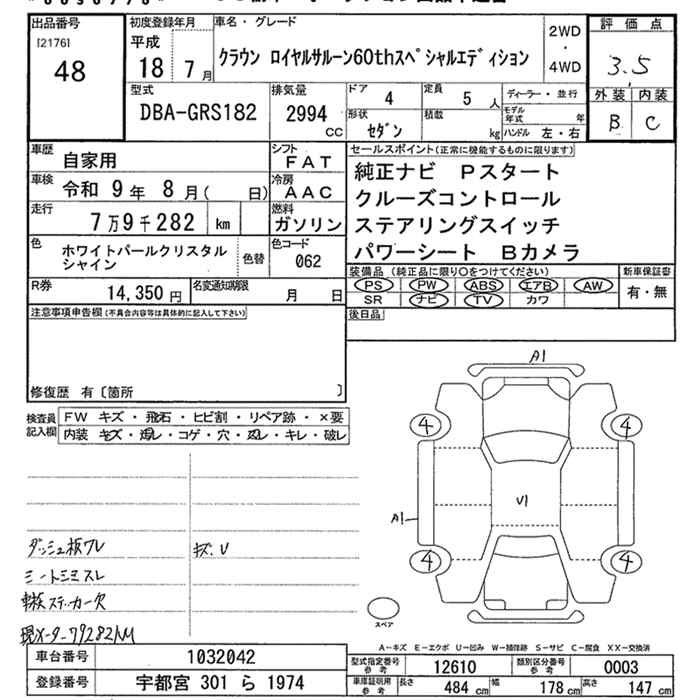 出品番号
[2176]
48
初度登録年月
平成
18 7月
車名・グレード
クラウン ロイヤルサルーン60thスペシャルエディション
2WD
・
4WD
評価点
3.5
外装 内装
B C
型式
DBA-GRS182
排気量
2994
CC
ドア 4
定員 5人
形状 セダン
積載 kg
ディーラー・並行
モデル年式 年
ハンドル 左・右
車歴 自家用
シフト FAT
車検 令和 9年 8月( 日)
冷房 AAC
走行 7万9千282 km
燃料 ガソリン
色 ホワイトパールクリスタルシャイン
色替
色コード 062
R券 14,350円
名変通知期限 月 日
セールスポイント(正常に機能するものに限ります)
純正ナビ Pスタート
クルーズコントロール
ステアリングスイッチ
パワーシート Bカメラ
装備品(純正品に限り○をつけてください)
PS PW ABS エアB AW
SR ナビ TV カワ
新車保証書
有・無
後日品
注意事項申告欄(不具合内容等は具体的に記入して下さい)
修復歴 有〔箇所 〕
検査員記入欄
FW キズ・飛石・ヒビ割・リペア跡・×要
内装 キズ・汚れ・コゲ・穴・スレ・キレ・破レ
ダッシュ板ワレ
キズ・U
シートシミスレ
車検ステッカー欠
現メーター79282KM
A1
4
4
A1
V1
4
4
スペア
A-キズ E-エクボ U-凹み W-補修跡 S-サビ C-腐食 XX-交換済
車台番号 1032042
型式指定番号 参考 12610
類別区分番号 参考 0003
登録番号 宇都宮 301 ら 1974
車庫証明用 参考
長さ 484cm
幅 178cm
高さ 147cm